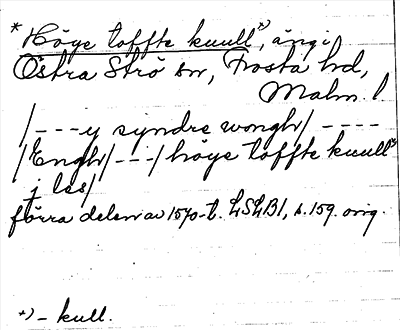 * Höye toffte kuull *), äng i
Östra Strö sn, Frosta hd,
Malm. l
/---y syndre wongh/ ----
/Engh/---/ höye toffte kuull *)
j les/
förra delen av 1570-t. LSLB1, s. 159. orig.
*) - kull.